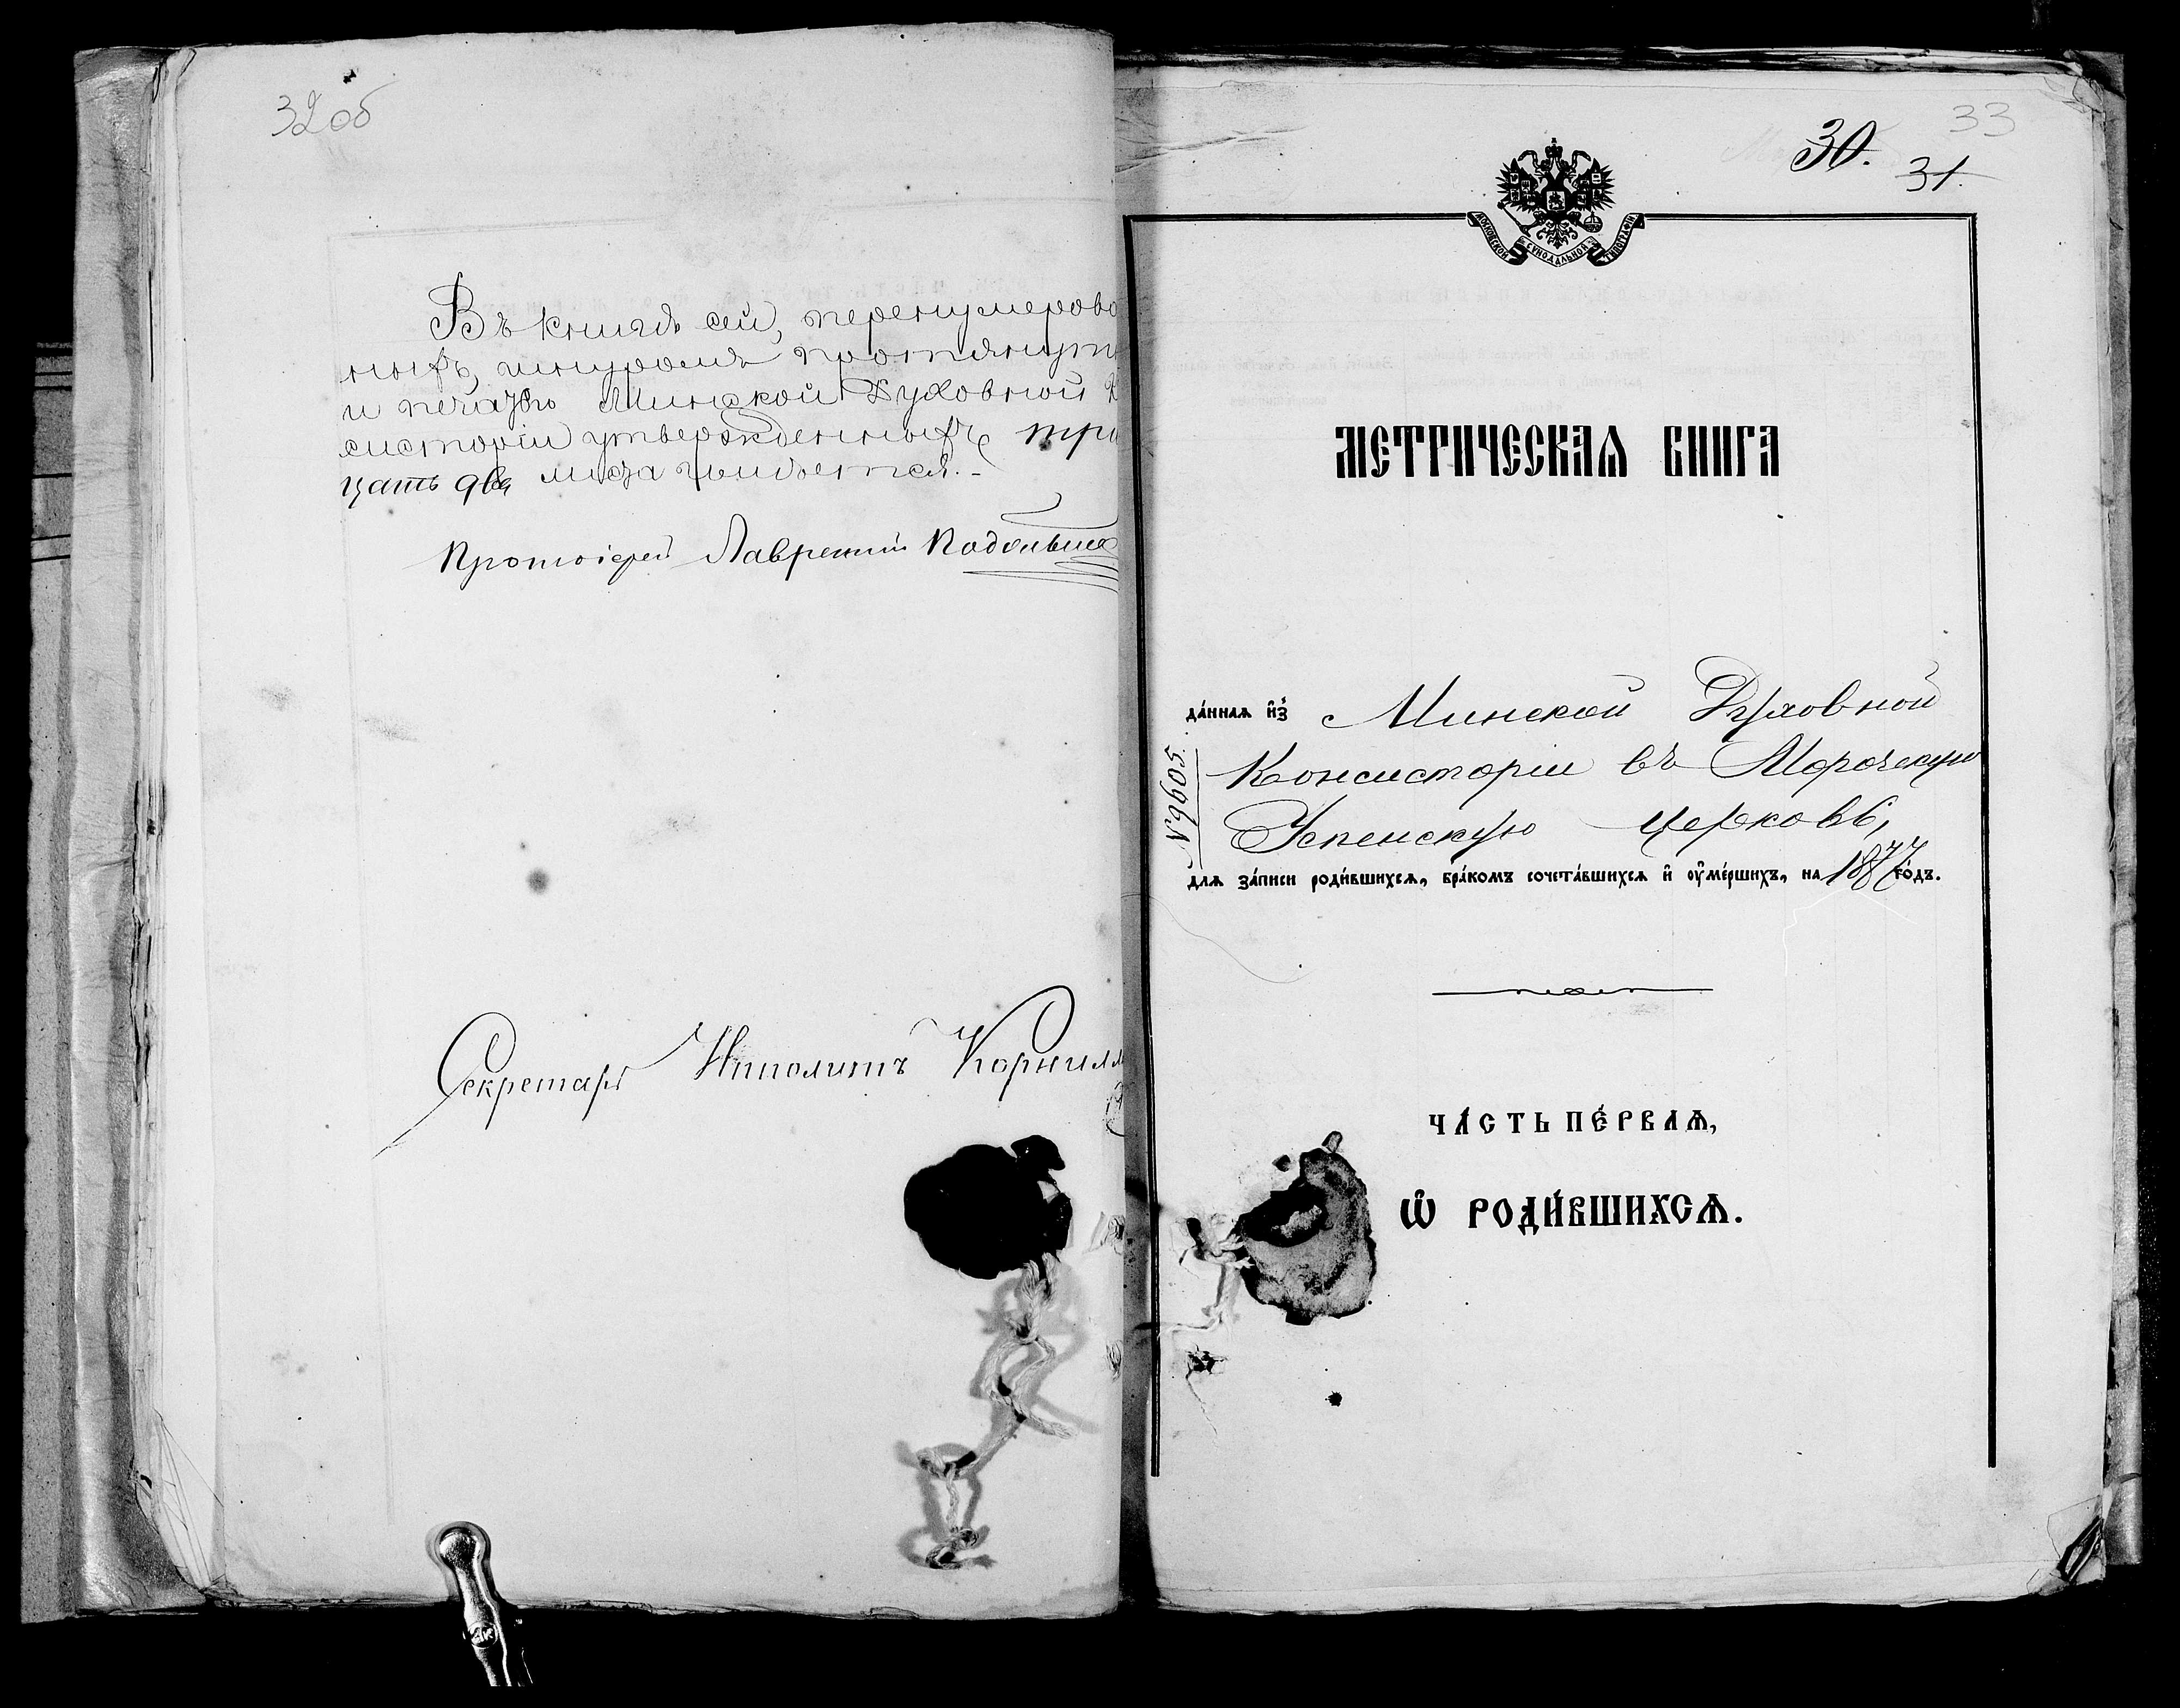 32об
Въ книгѣ сей, перенумерова
ныхъ, шнуромъ протянуты
и печатью Минской Духовной К
систоріи утвержденныхъ, три
цать два листа имѣется.-
Протоіерей Лаврентій Подольск
Секретарь Ипполитъ Корнилл
33
30.
31.
МОСКОВСКОЙ СѴНОДАЛЬНОЙ ТИПОГРАФІИ
МЕТРИЧЕСКАѦ КНИГА
да́ннаѧ и҆з̾ Минской Духовной
Консисторіи въ Морочскую
Успенскую церковь,
длѧ за́писи роди́вшихсѧ, бра́комъ сочета́вшихсѧ и҆ оу҆ме́ршихъ, на 1877 го́дъ.
№9605
ЧА́СТЬ ПЕ́РВАѦ,
Ѽ РОДИ́ВШИХСѦ.